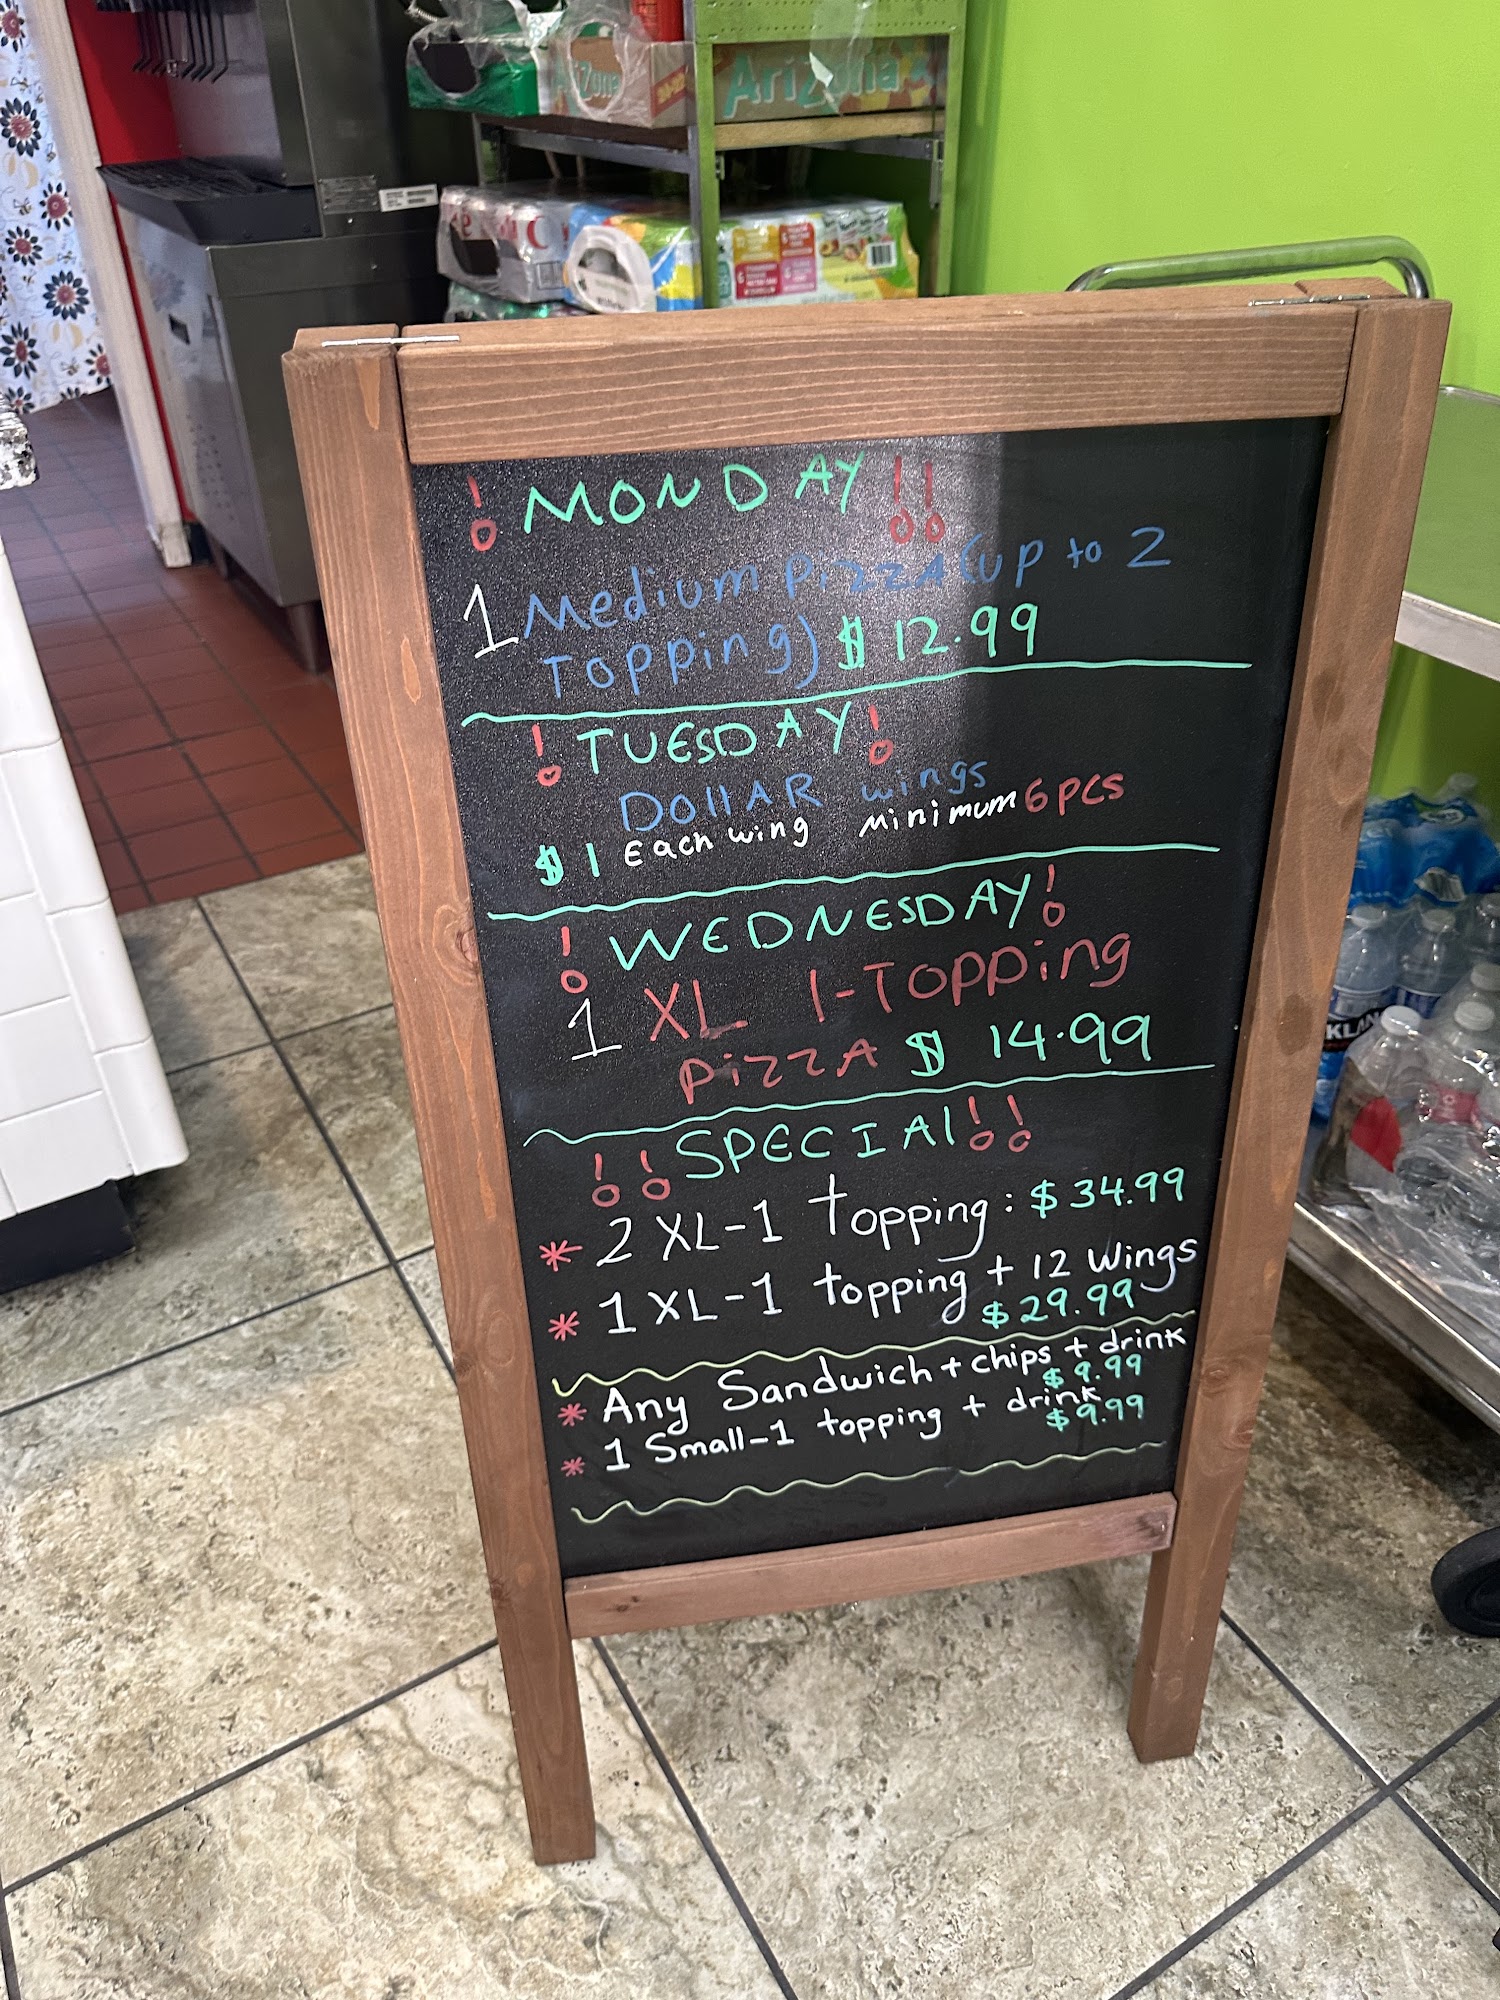 AriZona
AriZona
! MONDAY !!
1 Medium pizzA (up to 2
Topping) $ 12.99
! TUESDAY !
DollAR wings
$1 Each wing minimum 6 pcs
! WEDNESDAY !
1 XL 1-Topping
pizzA $ 14.99
!! SPECIAl !!
* 2 XL-1 topping: $34.99
* 1 XL-1 topping + 12 Wings
$29.99
* Any Sandwich + chips + drink
$9.99
* 1 Small-1 topping + drink
$9.99